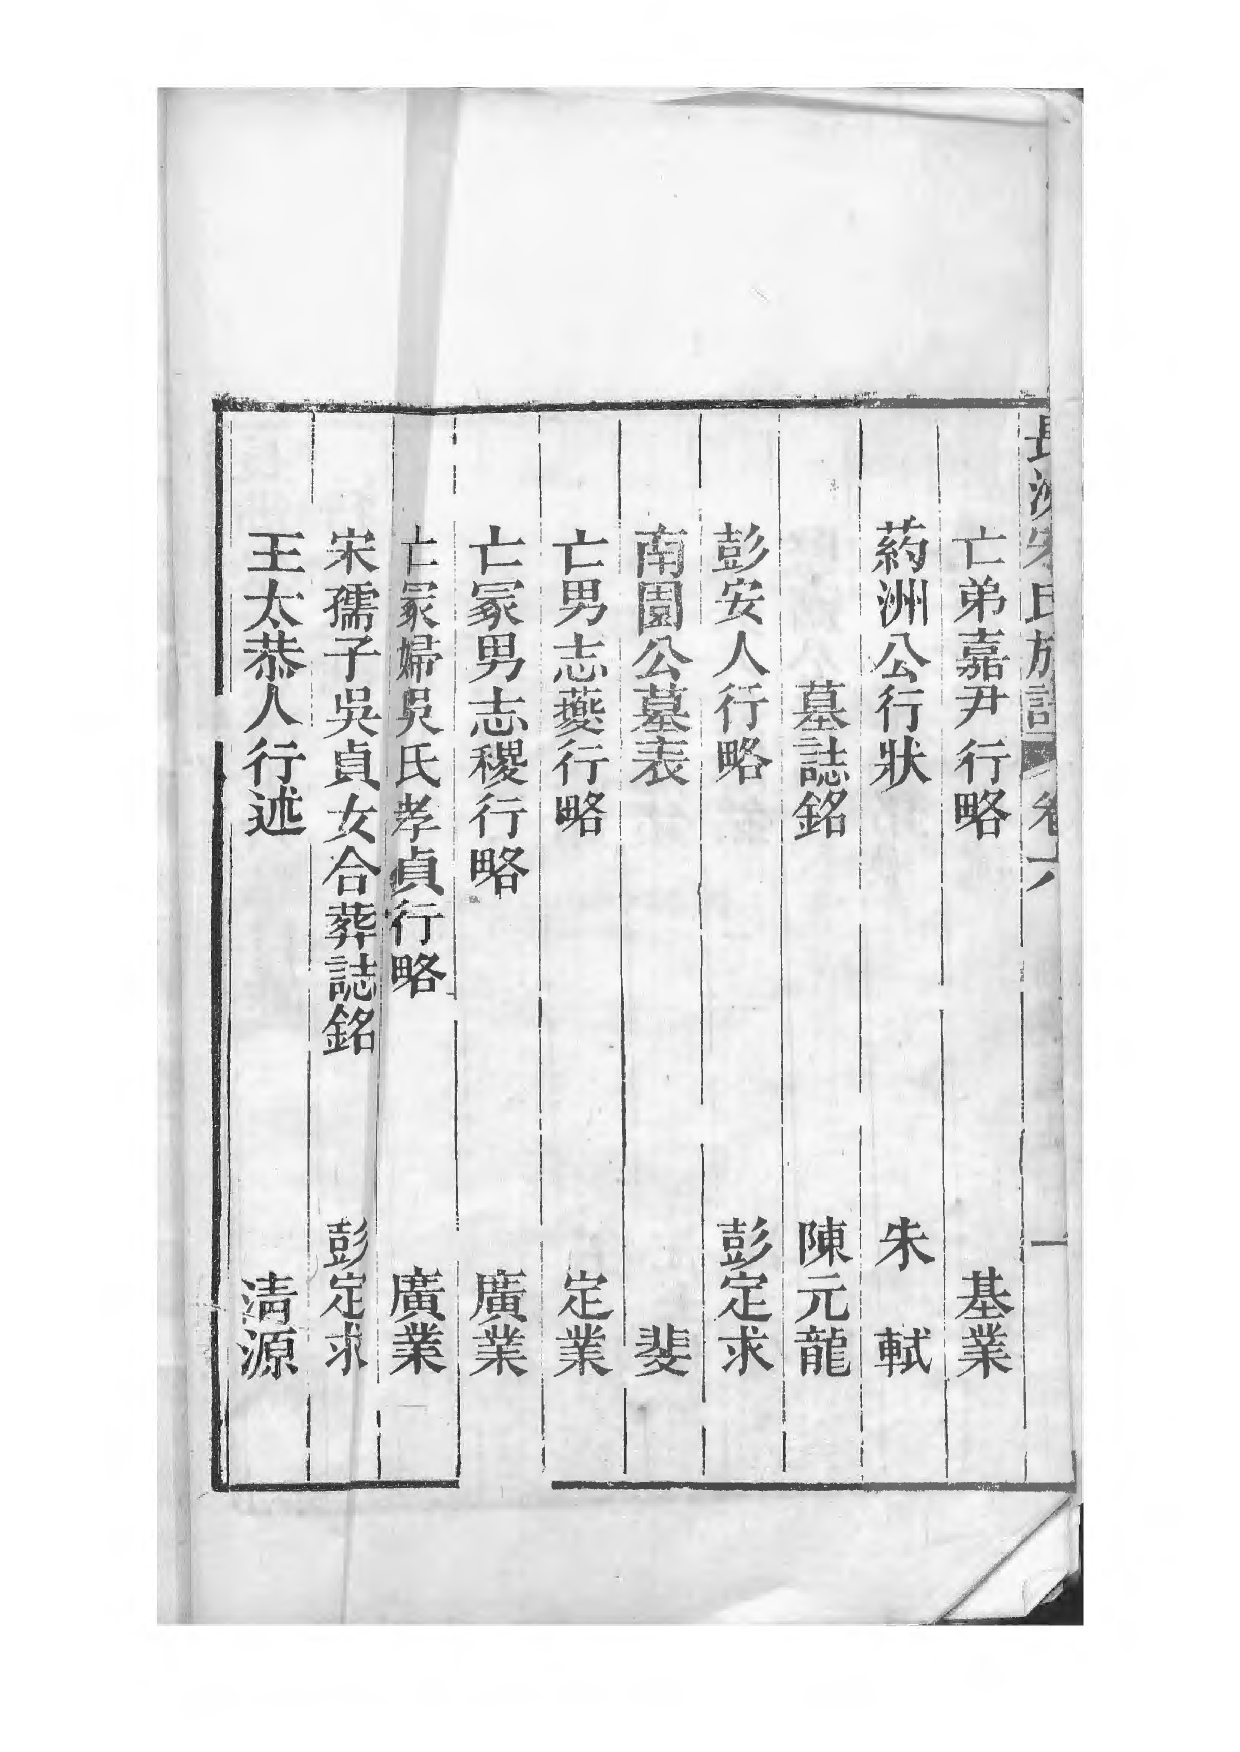 長洲宋氏族譜 卷六 一
亡弟嘉尹行略 基業
葯洲公行狀 朱軾
墓誌銘 陳元龍
彭安人行略 彭定求
南園公墓表 斐
亡男志夔行略 定業
亡冢男志稷行略 廣業
亡冢婦吳氏孝貞行略 廣業
宋孺子吳貞女合葬誌銘 彭定求
王太恭人行述 清源